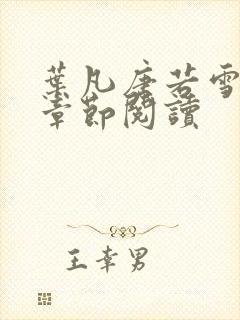 葉凡唐若雪
章節閱讀
王幸男